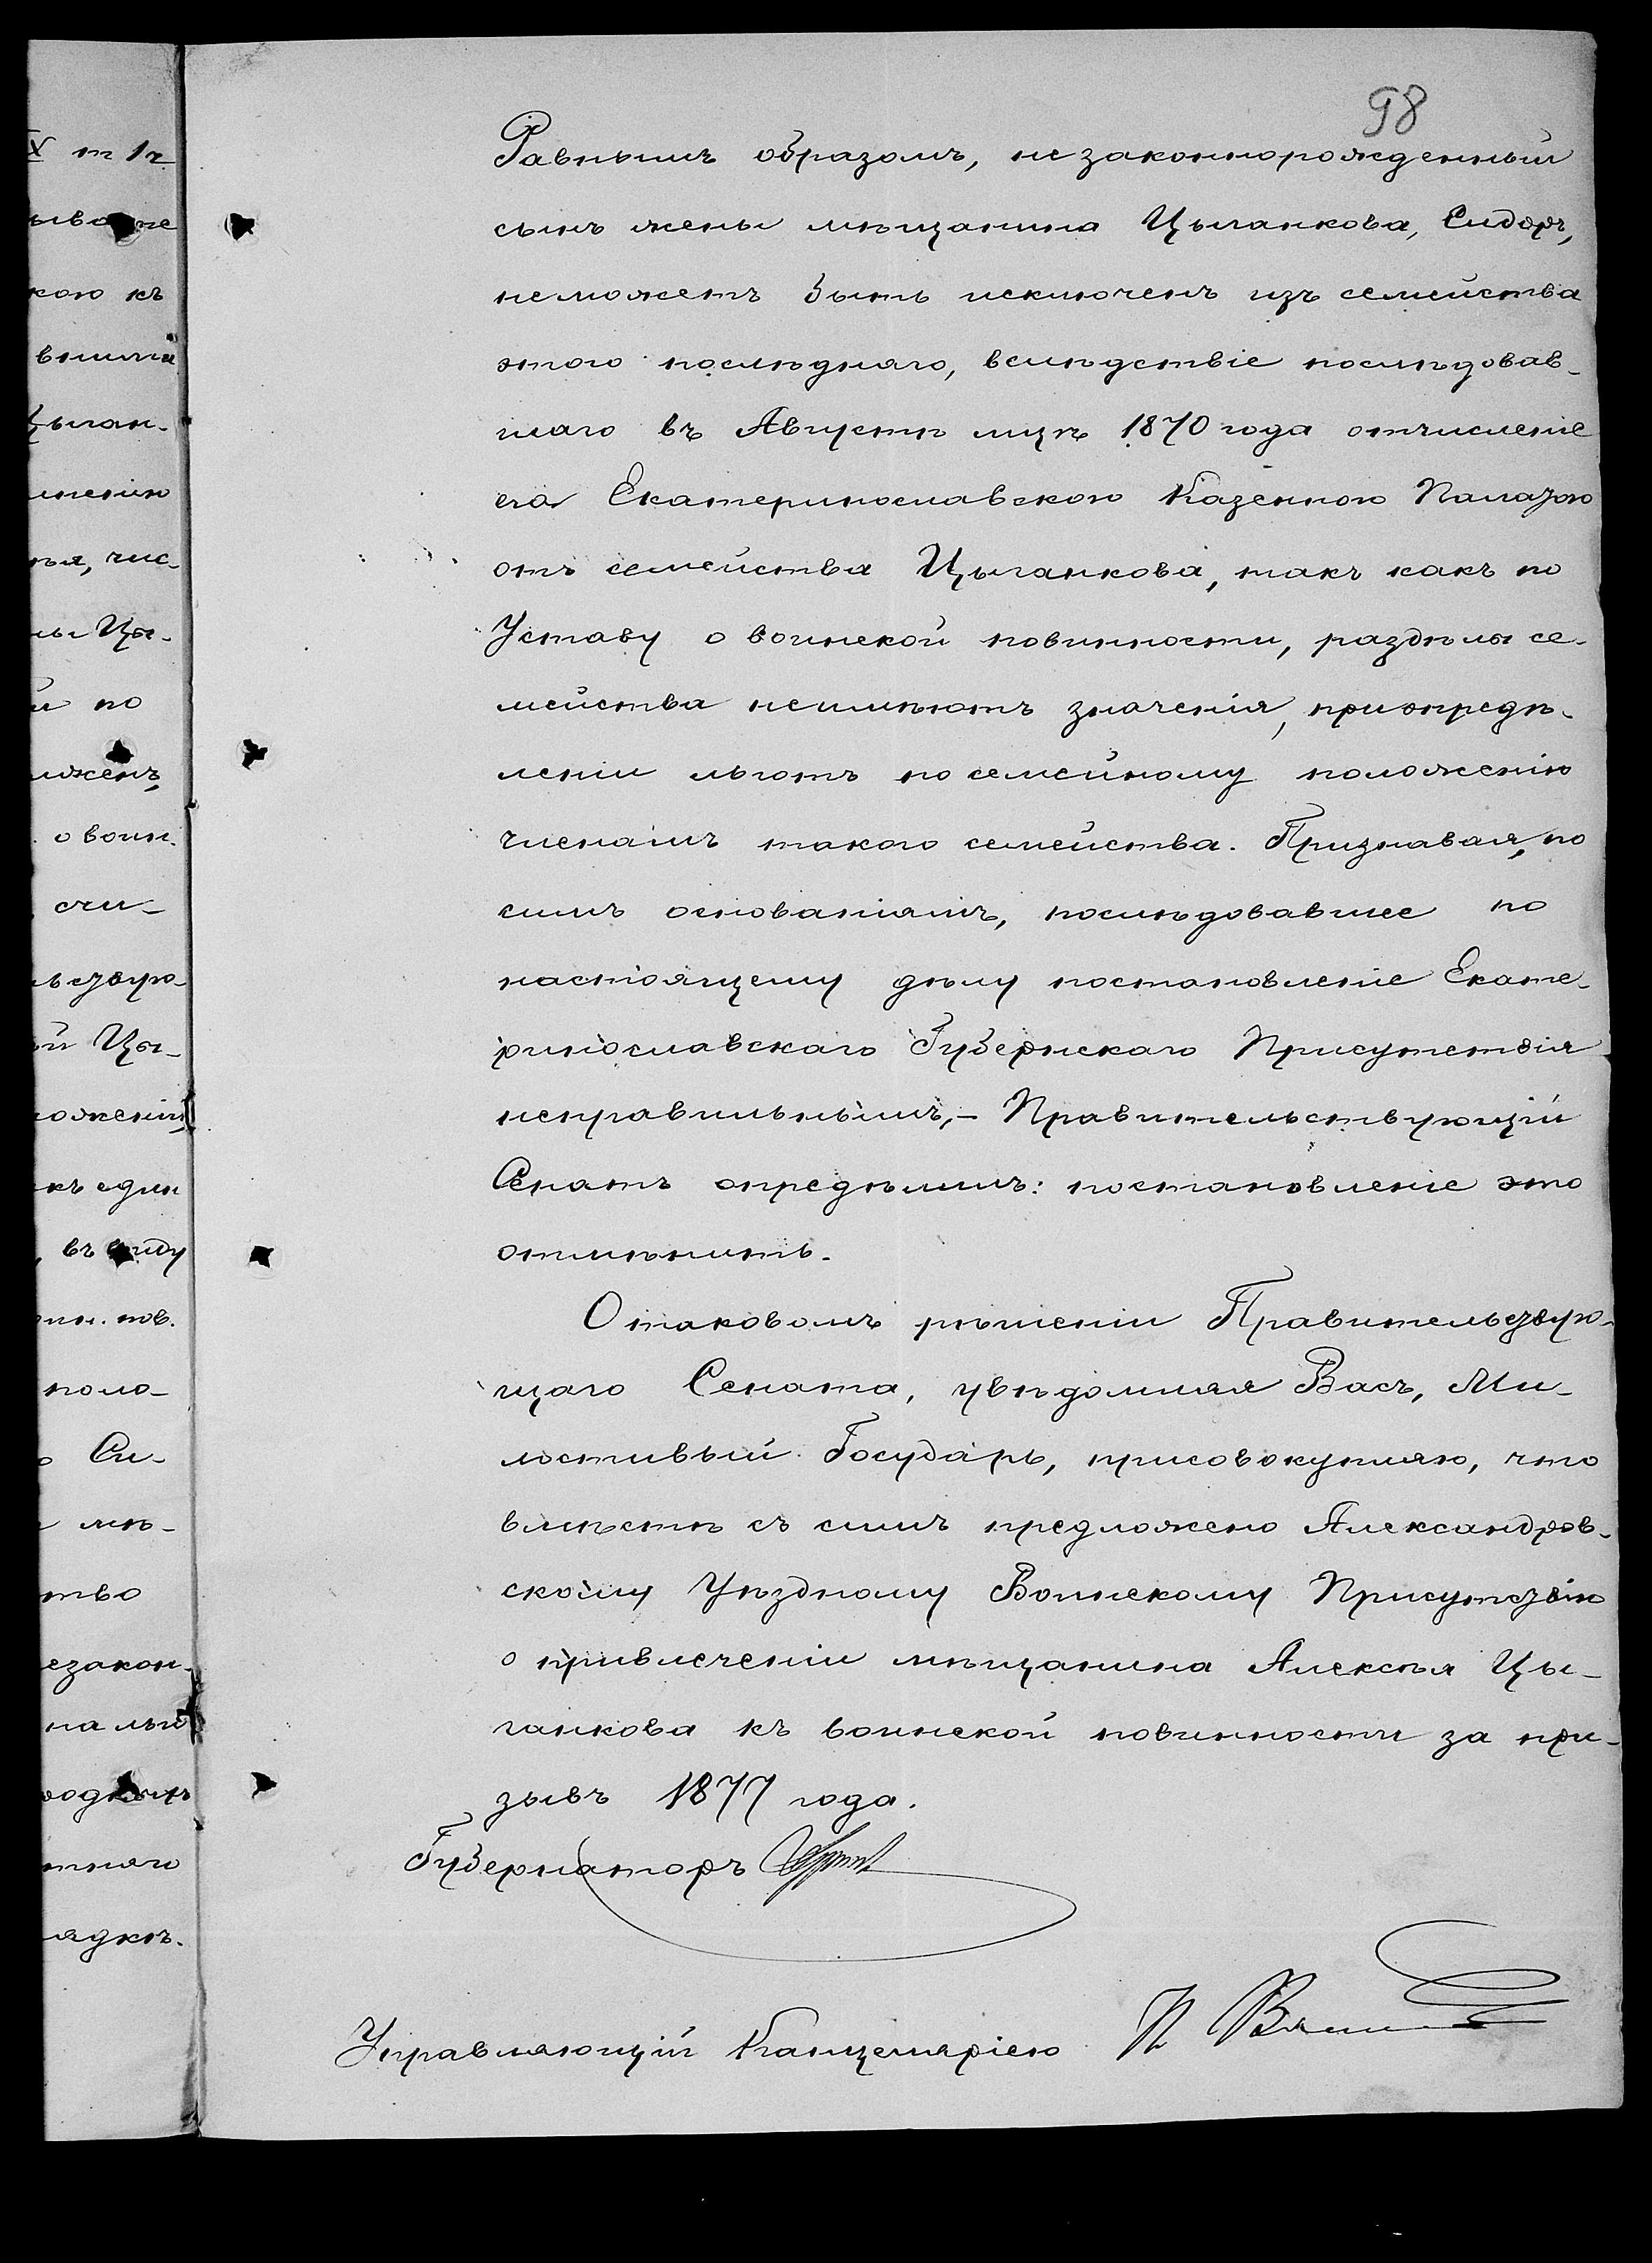 98
Равнымъ образомъ, незаконнорожденный
сынъ жены мѣщанина Цыганкова, Сидоръ,
неможетъ быть исключенъ изъ семейства
этого послѣдняго, вслѣдствіе послѣдовав-
шаго въ Августѣ мцѣ 1870 года отчисленіе
его Екатеринославскою Казенною Палатою
отъ семейства Цыганкова, такъ какъ по
Уставу о воинской повинности, раздѣлы се-
мейства неимѣютъ значенія, приопредѣ-
леніи льготъ по семейному положенію
членамъ такого семейства. Признавая, по
симъ основаніямъ, послѣдовавшее по
настоящему дѣлу постановленіе Екате-
ринославскаго Губернскаго Присутствія
неправильнымъ, – Правительствующій
Сенатъ опредѣлилъ: постановленіе это
отмѣнить.
О таковомъ рѣшеніи Правительствую-
щаго Сената, увѣдомляя Васъ, Ми-
лостивый Государь, присовокупляю, что
вмѣстѣ съ симъ предложено Александров-
скому Уѣздному Воинскому Присутствію
о привлеченіи мѣщанина Алексѣя Цы-
ганкова къ воинской повинности за при-
зывъ 1877 года.
Губернаторъ
Управляющій Канцеляріею